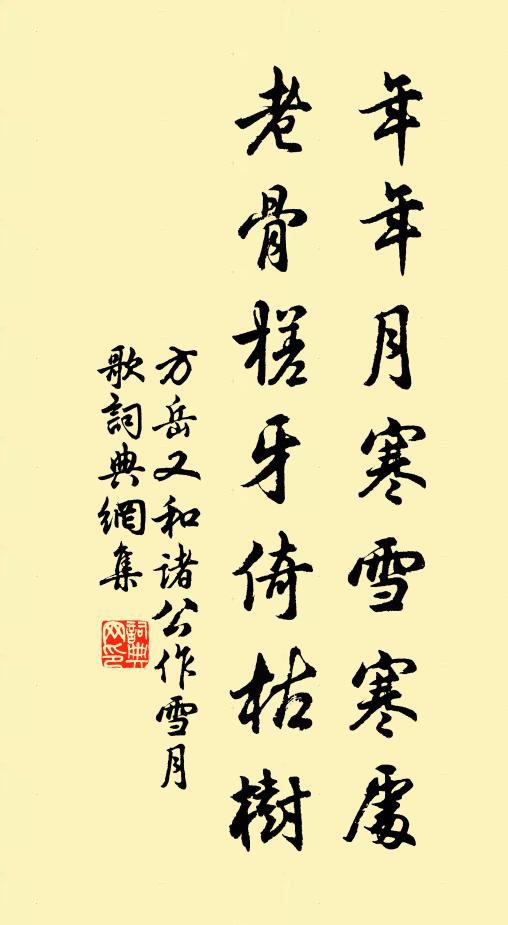 年年月寒雪寒處
老骨槎牙倚枯樹
方岳又和諸公作雪月
歌詞典網集
詞典网印